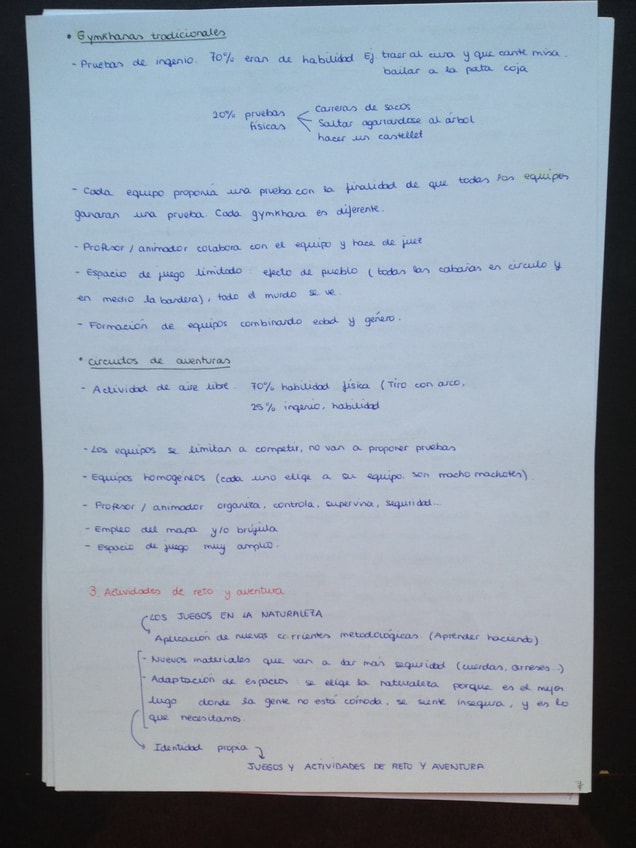 • Gymkhanas tradicionales
- Pruebas de ingenio. 70% eran de habilidad Ej traer al cura y que cante misa.
bailar a la pata coja
20% pruebas físicas
Carreras de sacos
Saltar agarrandose al árbol
hacer un castellet
- Cada equipo proponia una prueba con la finalidad de que todos los equipos
ganaran una prueba. Cada gymkhana es diferente.
- Profesor / animador colabora con el equipo y hace de juez
- Espacio de juego limitado: efecto de pueblo (todas las cabañas en circulo y
en medio la bandera), todo el mundo se ve.
- Formación de equipos combinando edad y género.
• Circuitos de aventuras
- Actividad de aire libre. 70% habilidad física (Tiro con arco,
25% ingenio, habilidad
- Los equipos se limitan a competir, no van a proponer pruebas
- Equipos homogéneos (cada uno elige a su equipo: son macho machotes).
- Profesor / animador organiza, controla, supervisa, seguridad...
- Empleo del mapa y/o brújula
- Espacio de juego muy amplio.
3. Actividades de reto y aventura
LOS JUEGOS EN LA NATURALEZA
Aplicación de nuevas corrientes metodológicas (Aprender haciendo)
- Nuevos materiales que van a dar más seguridad (cuerdas, arneses...)
- Adaptación de espacios: se elige la naturaleza porque es el mejor
lugar donde la gente no está cómoda, se siente insegura, y es lo
que necesitamos
Identidad propia
JUEGOS Y ACTIVIDADES DE RETO Y AVENTURA
7